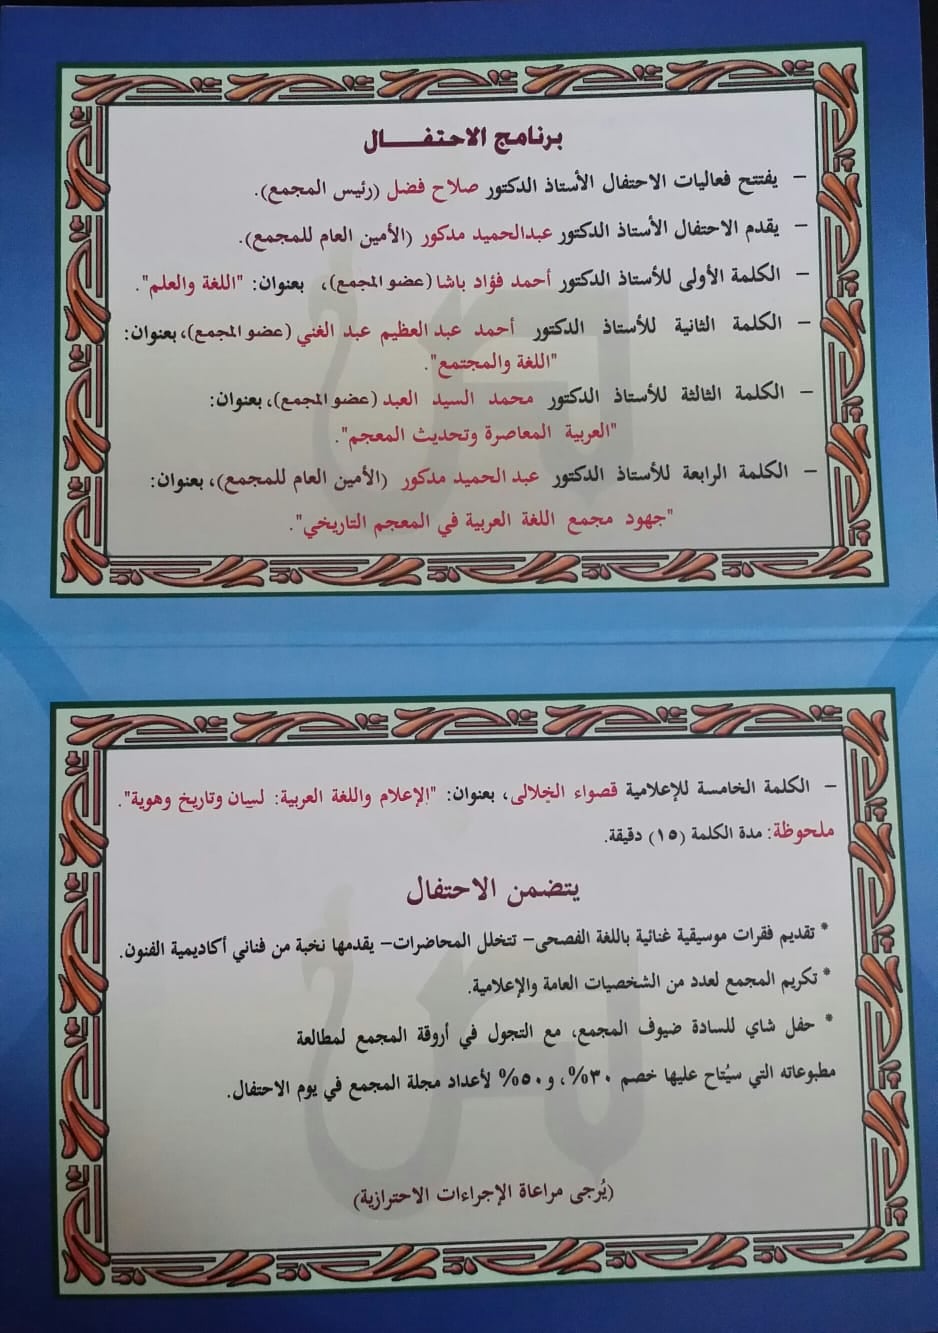 برنامج الاحتفـــــال
– يفتتح فعاليات الاحتفال الأستاذ الدكتور صلاح فضل (رئيس المجمع).
– يقدم الاحتفال الأستاذ الدكتور عبدالحميد مدكور (الأمين العام للمجمع).
– الكلمة الأولى للأستاذ الدكتور أحمد فؤاد باشا (عضو المجمع)، بعنوان: "اللغة والعلم".
– الكلمة الثانية للأستاذ الدكتور أحمد عبد العظيم عبد الغني (عضو المجمع)، بعنوان:
"اللغة والمجتمع".
– الكلمة الثالثة للأستاذ الدكتور محمد السيد العبد (عضو المجمع)، بعنوان:
"العربية المعاصرة وتحديث المعجم".
– الكلمة الرابعة للأستاذ الدكتور عبد الحميد مدكور (الأمين العام للمجمع)، بعنوان:
"جهود مجمع اللغة العربية في المعجم التاريخي".
– الكلمة الخامسة للإعلامية قصواء الخلالى، بعنوان: "الإعلام واللغة العربية: لسان وتاريخ وهوية".
ملحوظة: مدة الكلمة (١٥) دقيقة.
يتضمن الاحتفال
* تقديم فقرات موسيقية غنائية باللغة الفصحى– تتخلل المحاضرات– يقدمها نخبة من فناني أكاديمية الفنون.
* تكريم المجمع لعدد من الشخصيات العامة والإعلامية.
* حفل شاي للسادة ضيوف المجمع، مع التجول في أروقة المجمع لمطالعة
مطبوعاته التي سيُتاح عليها خصم ٣٠%، و٥٠% لأعداد مجلة المجمع في يوم الاحتفال.
(يُرجى مراعاة الإجراءات الاحترازية)